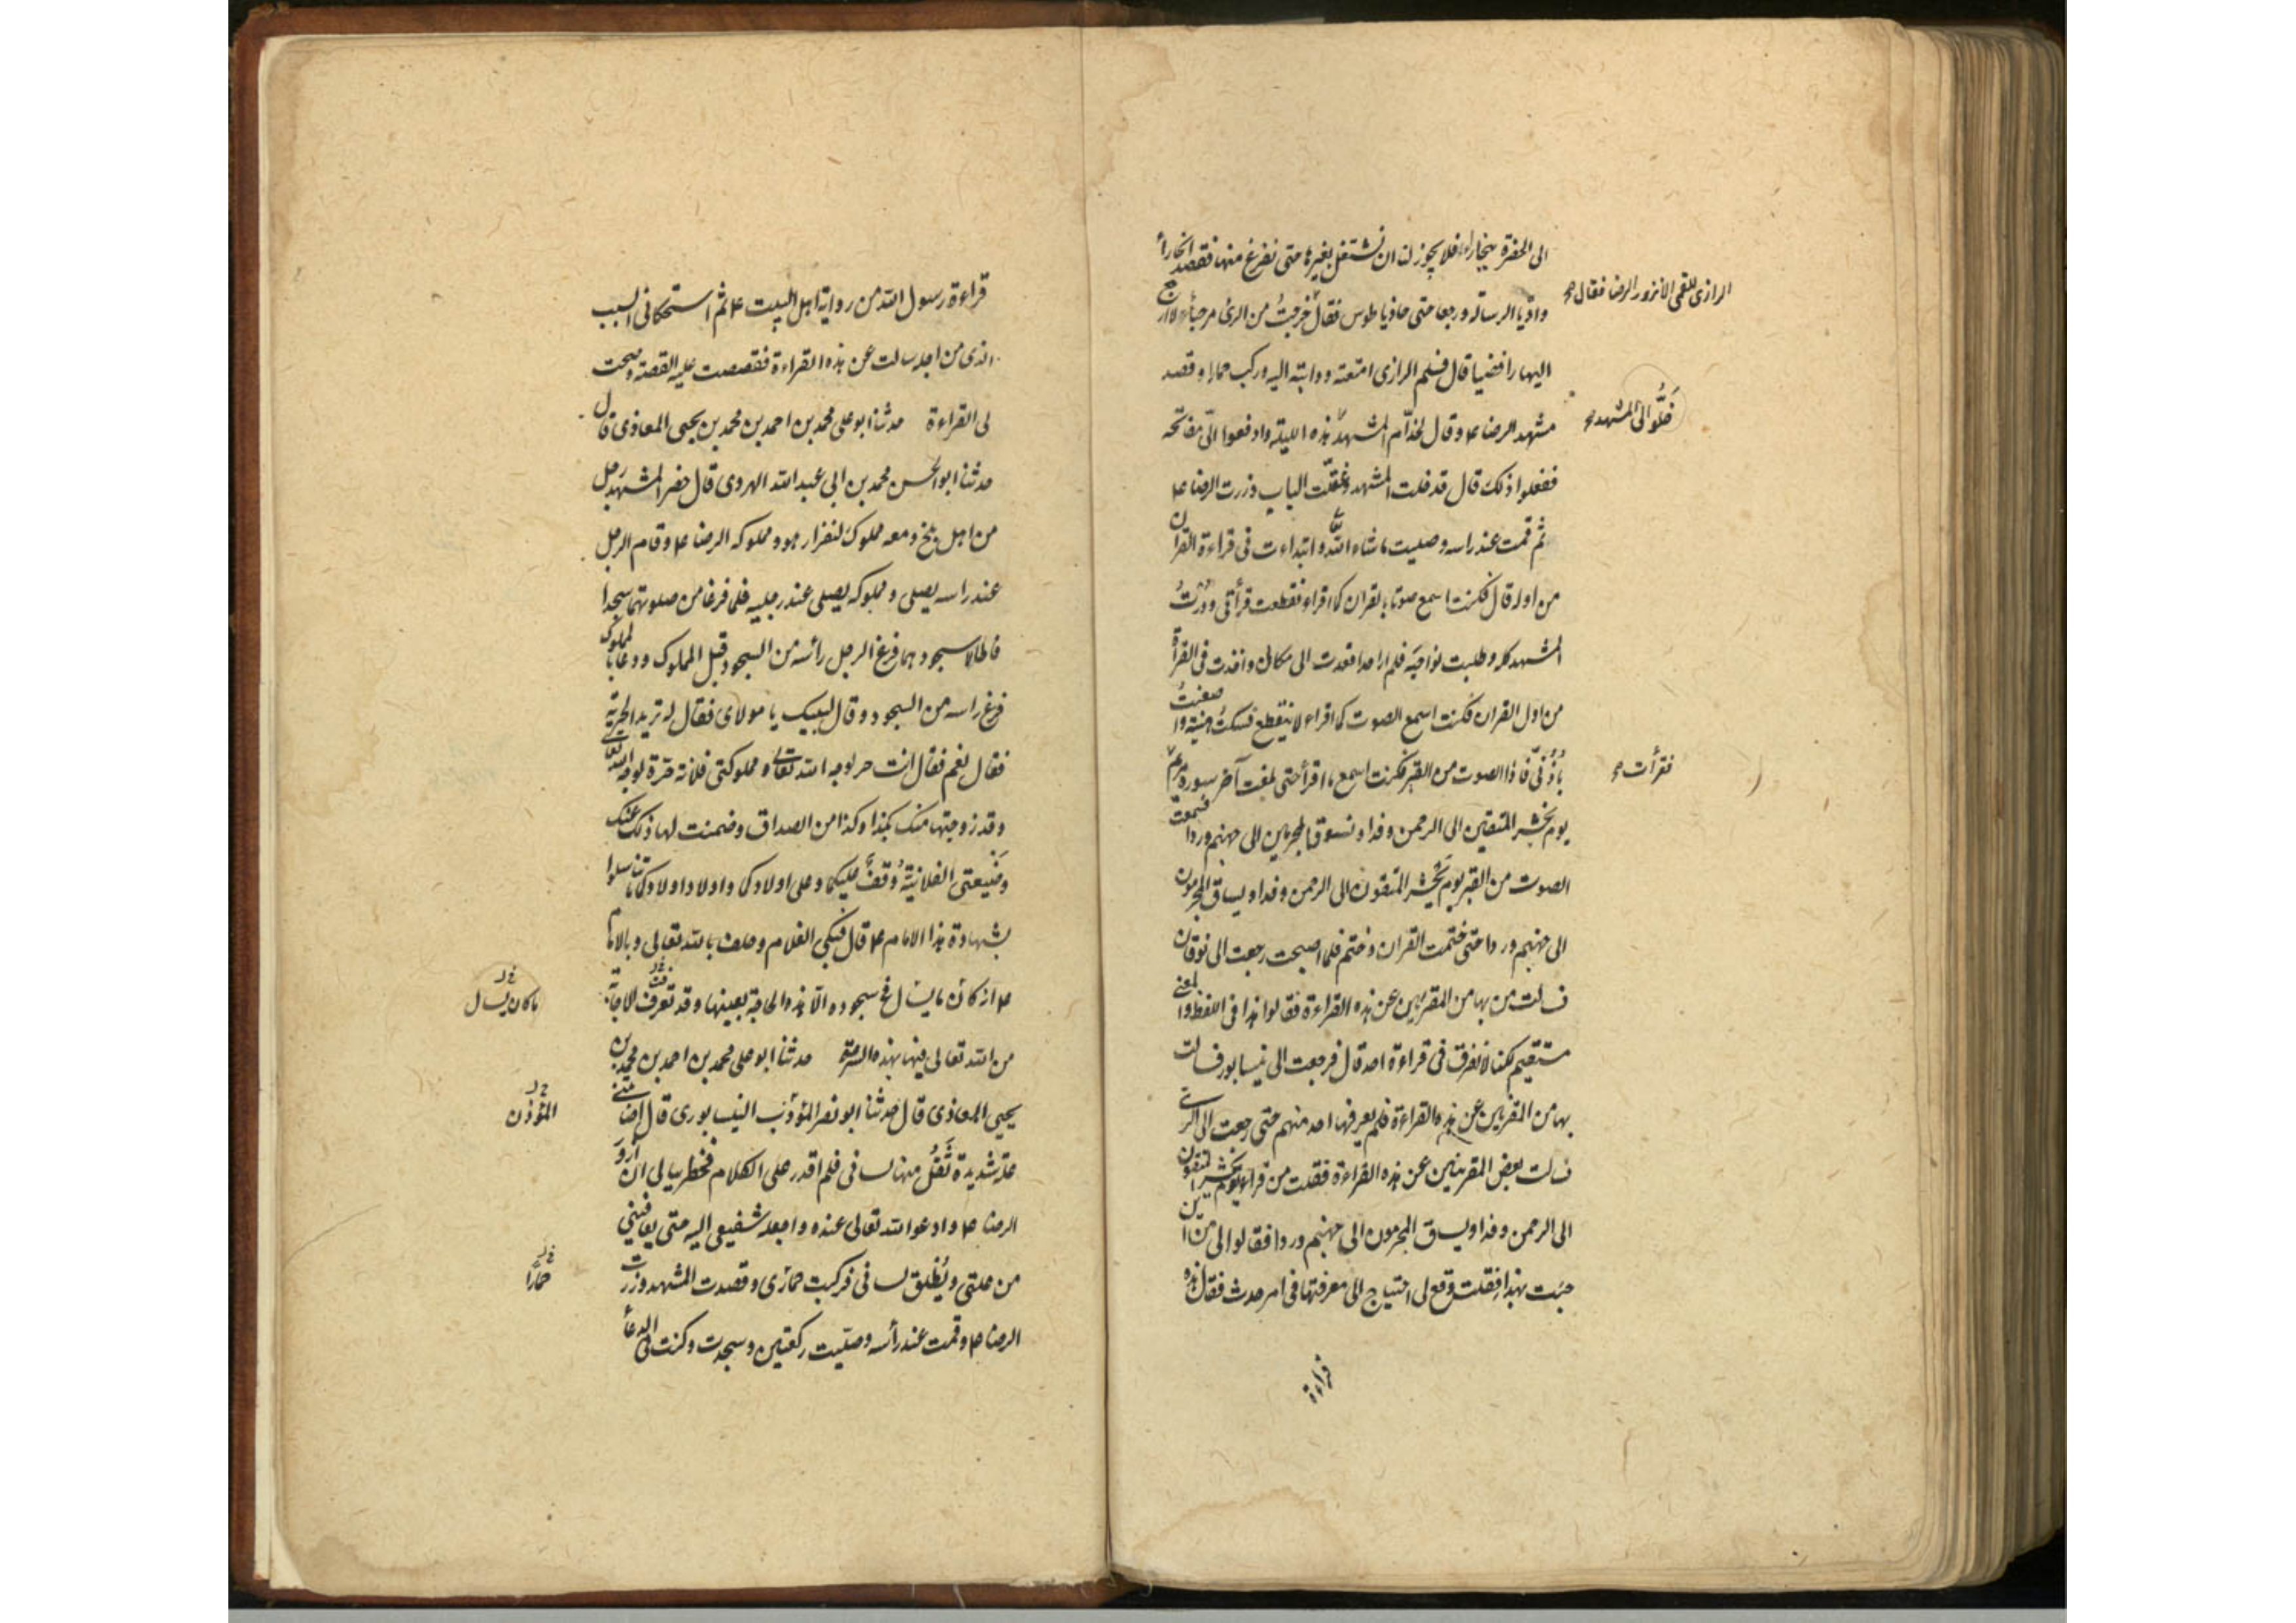 الى الحضرة ببخارا، فلا يجوز لنا ان نشتغل بغيرها حتى نفرغ منها فقصد ابخارا
وادّيا الرسالة ورجعا حتى حاذيا طوس فقال خرجتُ من الرى مرجئا، لا ارجع
الرازى للقمى الا نزور الرضا فقال صح
اليها رافضيا قال فسلم الرازى امتعته ودابته اليه وركب حمارا وقصد
مشهد الرضا ع وقال لخدّام المشهد هذه الليلة وادفعوا الىّ مفاتحه
خَلُّوا الىّ المشهد صح
ففعلوا ذلك قال فدخلت المشهد وغلّقت الباب وزرت الرضا ع
ثم قمت عند راسه وصليت ما شاء الله تعا وابتداءت فى قراءة القران
من اوله قال فكنت اسمع صوتا بالقران كما اقراء فقطعت قرأتى ودُرْتُ
المشهد كله وطلبت نواحيَه فلم ار احدا فعدت الى مكانى واخذت فى القرأة
من اول القران فكنت اسمع الصوت كما اقراء لا ينقطع فسكتُ هنيئة واصغيتُ
باُذُنى فاذا الصوت من القبر فكنت اسمع ما اقرأ حتى بلغت آخر سورة مريم ع
فقرأت صح
يوم نحشر المتقين الى الرحمن وفدا ونسوق المجرمين الى جهنم وردا فسمعت
الصوت من القبر يوم يُحْشَر المتقون الى الرحمن وفدا ويساق المجرمون
الى جهنم وردا حتى ختمت القران وختم فلما اصبحت رجعت الى نوقان
فسالت من بها من المقرئين عن هذه القراءة فقالوا هذا فى اللفظ والمعنى
مستقيم لكنا لا نعرف فى قراءة احد قال فرجعت الى نيسابور فسالت
بها من المقرئين عن هذه القراءة فلم يعرفها احد منهم حتى رجعت الى الرى
فسالت بعض المقرئين عن هذه القراءة فقلت من قراء يوم يحشر المتقون
الى الرحمن وفدا ويساق المجرمون الى جهنم وردا فقالوا لى من اين
جئت بهذا فقلت وقع لى احتياج الى معرفتها فى امر حدث فقال هذه
قراءة
قراءة رسول الله من رواية اهل البيت ع ثم استحكانى السبب
الذى من اجله سالت عن هذه القراءة فقصصت عليه القصة وصحت
لى القراءة حدثنا ابو على محمد بن احمد بن محمد بن يحيى المعاذى قال
حدثنا ابو الحسن محمد بن ابى عبد الله الهروى قال حضر المشهد رجل
من اهل بلخ ومعه مملوك له فزار هو ومملوكه الرضا ع وقام الرجل
عند راسه يصلى ومملوكه يصلى عند رجليه فلما فرغا من صلوتهما سجدا
فاطالا سجودهما فرفع الرجل رأسه من السجود قبل المملوك ودعا بالمملوك
فرفع راسه من السجود وقال لبيك يا مولاى فقال له تريد الحرية
فقال نعم فقال انت حر لوجه الله تعالى ومملوكتى فلانة حرة لوجه الله تعالى
وقد زوجتها منك بكذا وكذا من الصداق وضمنت لها ذلك عنك
وضَيعتى الفلانيّة وُقفٌ عليكما وعلى اولادكما واولاد اولادكما ما تناسلوا
بشهادة هذا الامام ع قال فبكى الغلام وحلف بالله تعالى وبالامام
ع انه كان ما يسال فى سجوده الّا هذه الحاجة بعينها وقد تعرفت الاجابة
ما كان يسال خ ل
من الله تعالى فيها بهذه السرعة حدثنا ابو على محمد بن احمد بن محمد بن
يحيى المعاذى قال حدثنا ابو نصر المؤدّب النيسابورى قال اصابتنى
المؤذن خ ل
علة شديدة ثَقُل منها لسانى فلم اقدر على الكلام فخطر ببالى ان ازور
الرضا ع وادعو الله تعالى عنده واجعله شفيعى اليه حتى يعافينى
من علتى ويُطلق لسانى فركبت حمارى وقصدت المشهد وزرت
حمارًا خ ل
الرضا ع وقمت عند رأسه وصلّيت ركعتين وسجدت وكنت فى الدعا